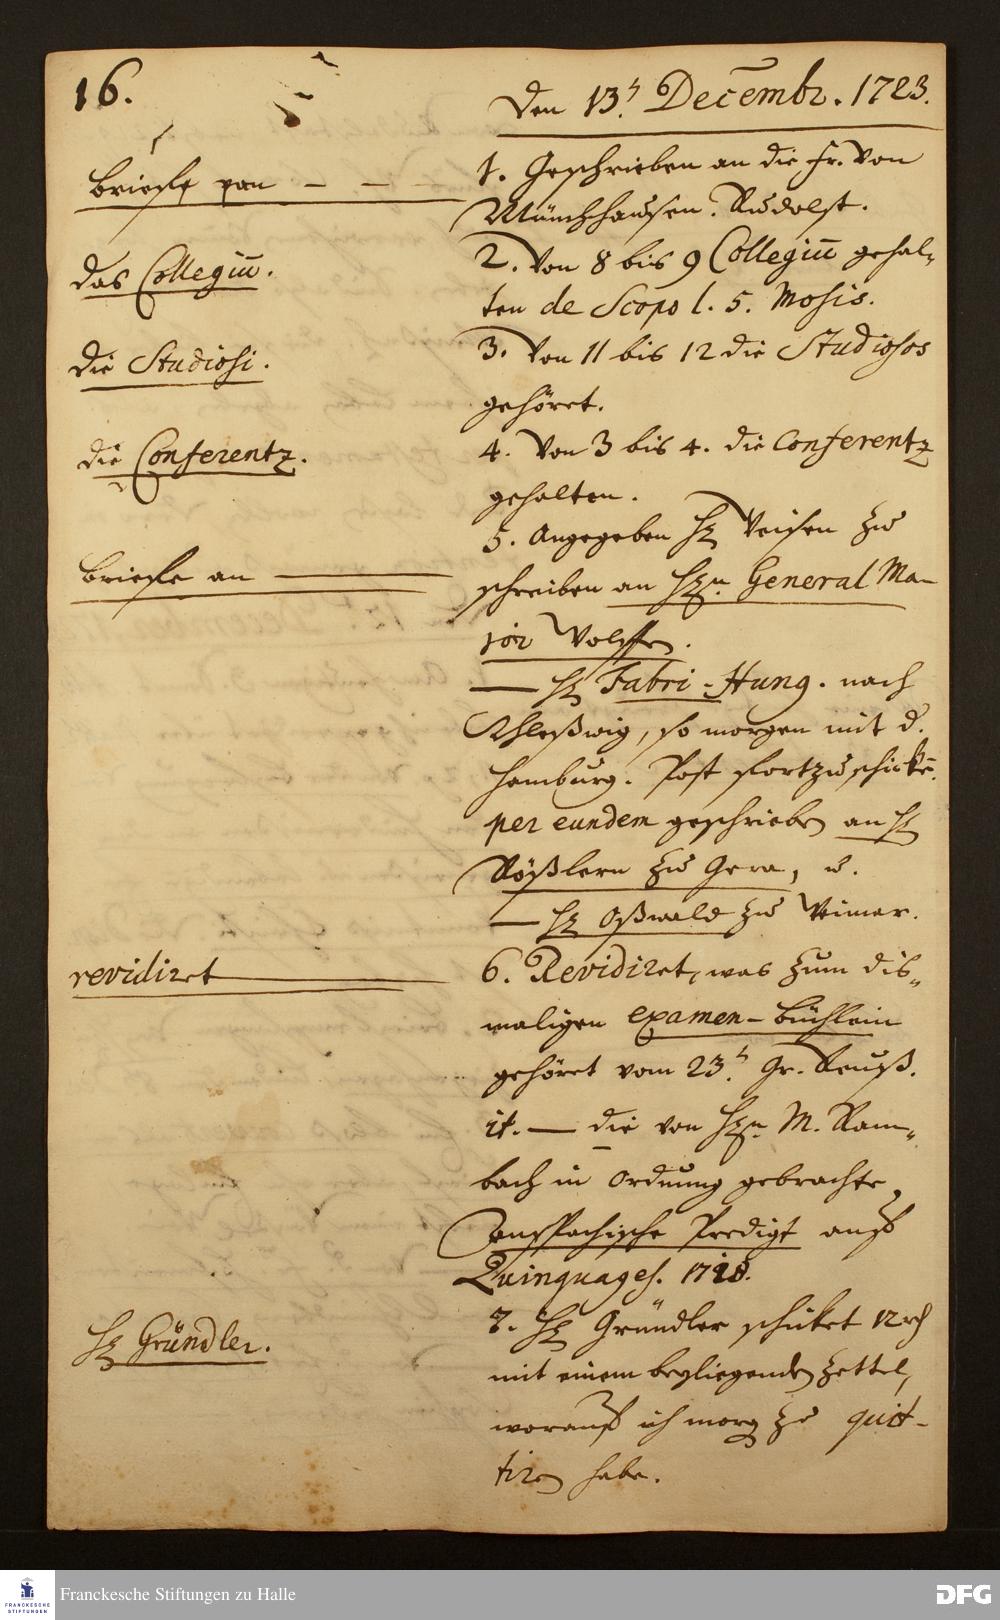 16.
Den 13.t Decembr. 1723.
briefe
1. Geschrieben an die Fr. von
Münchhausen. Rudolst.
das Collegiū.
2. Von 8 bis 9 Collegiū gehal-
ten de Scopo l. 5. Mosis.
die Studiosi.
3. Von 11 bis 12 die Studiosos
gehöret.
die Conferentz.
4. Von 3 bis 4. die Conferentz
gehalten.
5. Angegeben H. zu
briefe an
schreiben an Hrn. General Ma-
jor Wolffen.
— H. Fabri-Hung. nach
Schleßwig, so morgen mit d.
Hamburg. Post fortzuschickē.
per eundem geschrieben an H.
Rößlern zu Gera, u.
— H. Oßwald zu Weimar.
revidiret
6. Revidiret, was zum dis-
maligen Examen-büchlein
gehöret vom 23.t Gr. Reuß.
it. — die von Hrn. M. Ram-
bach in Ordnung gebrachte
Anspachische Predigt auß
Quinquages. 1718.
H. Gründler.
7. H. Gründler schicket 12
mit einem beyliegenden Zettel,
worauf ich morg zu quit-
tiren habe.
Franckesche Stiftungen zu Halle
FRANCKESCHE
STIFTUNGEN
DFG